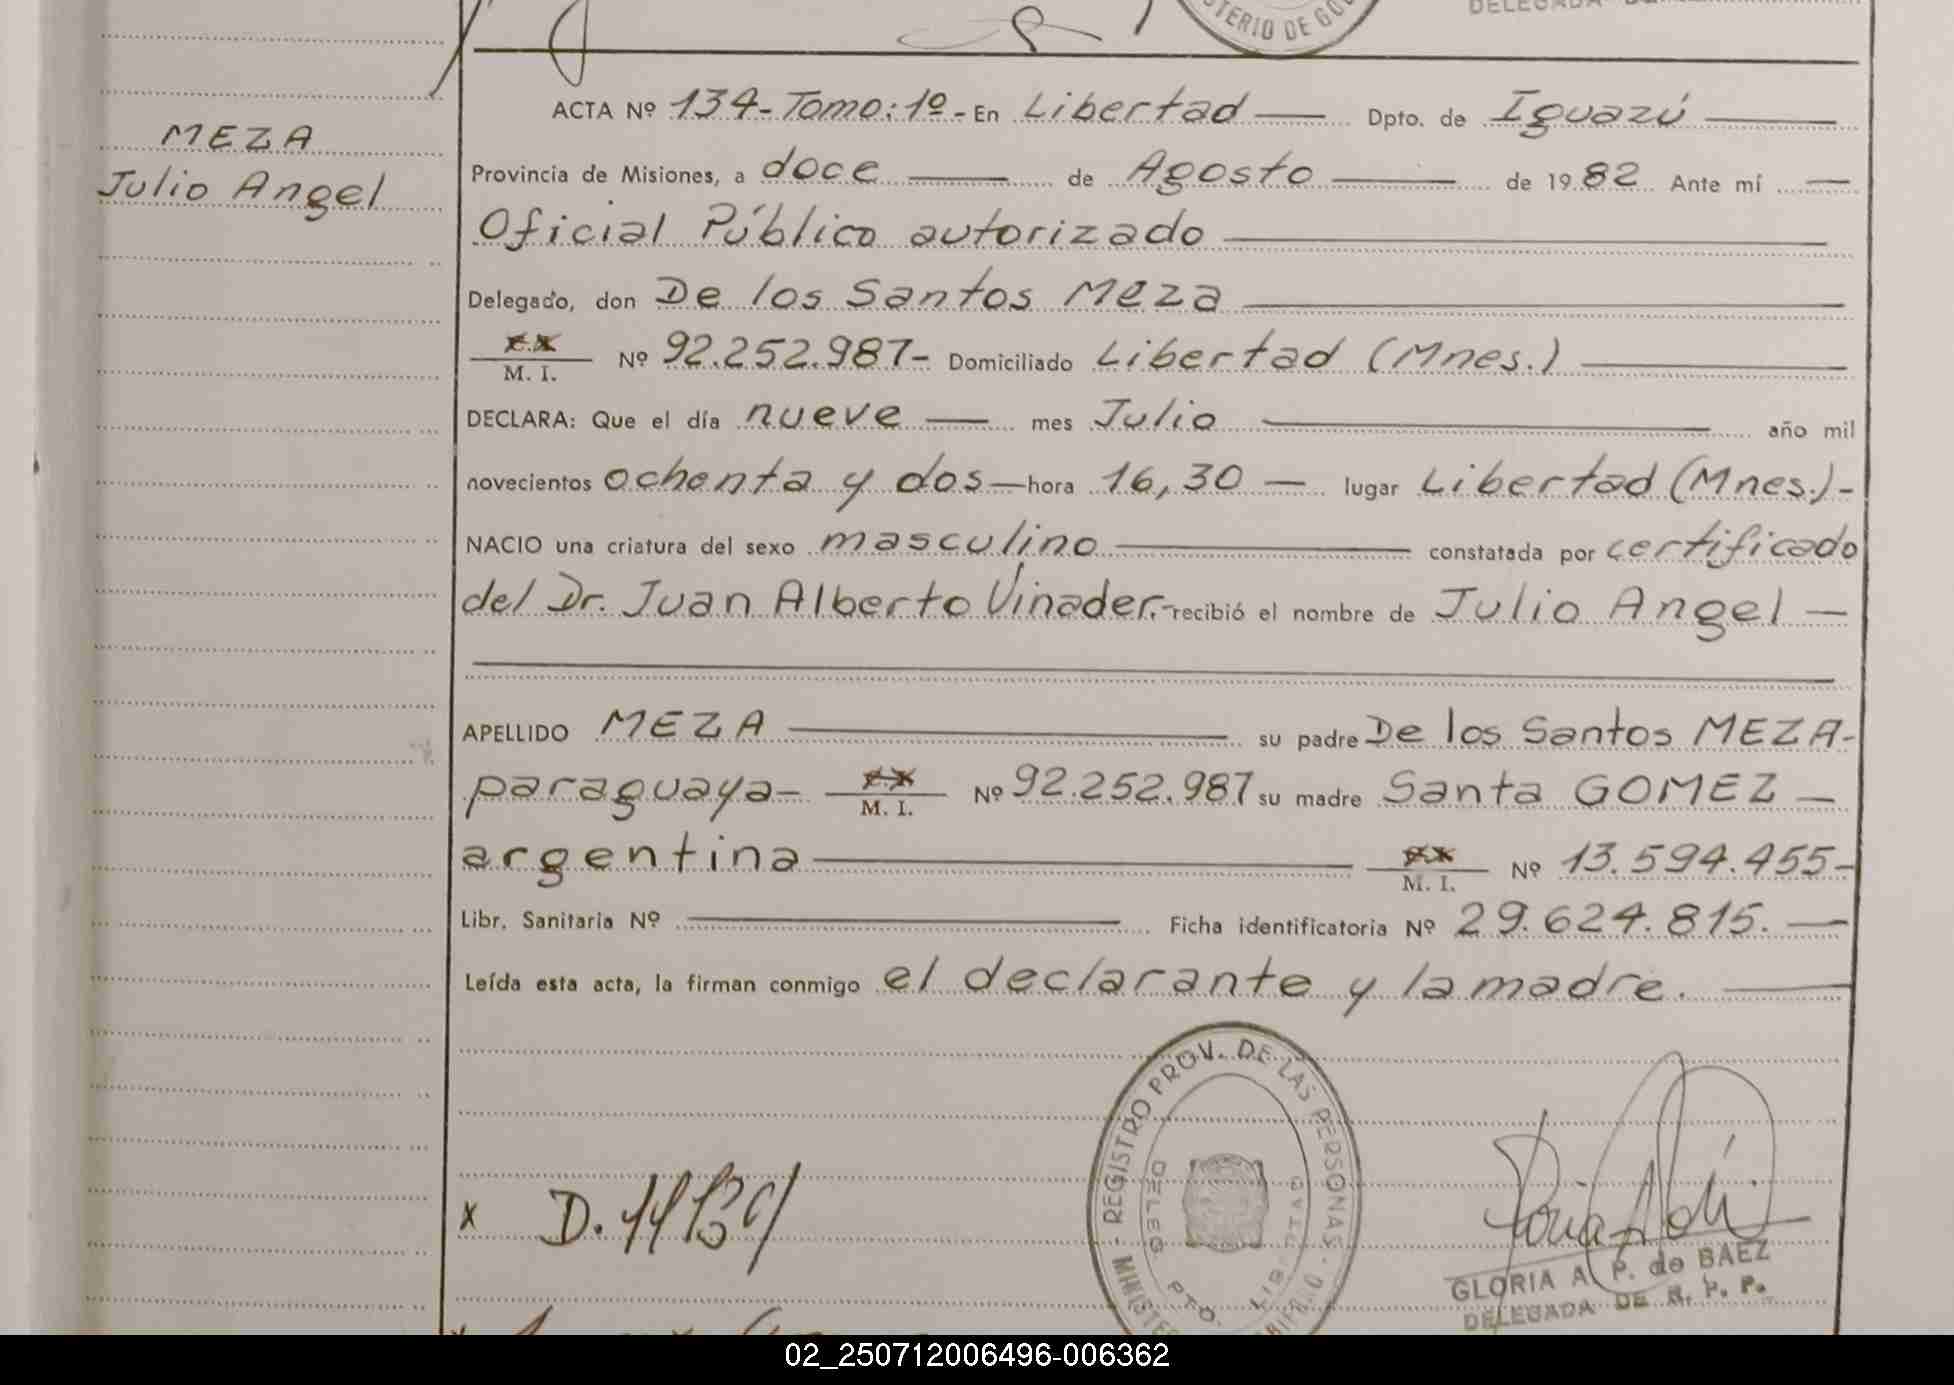 DELEGADA DE
MEZA
Julio Angel
ACTA Nº 134-Tomo: 1º- En Libertad — Dpto. de Iguazú
Provincia de Misiones, a doce — de Agosto — de 1982 Ante mí —
Oficial Público autorizado
Delegado, don De los Santos Meza
M. I. Nº 92.252.987- Domiciliado Libertad (Mnes.)
DECLARA: Que el día nueve — mes Julio — año mil
novecientos ochenta y dos — hora 16,30 — lugar Libertad (Mnes.)-
NACIO una criatura del sexo masculino — constatada por certificado
del Dr. Juan Alberto Vinader.- recibió el nombre de Julio Angel —
APELLIDO MEZA — su padre De los Santos MEZA-
paraguaya- M. I. Nº 92.252.987 su madre Santa GOMEZ —
argentina — M. I. Nº 13.594.455-
Libr. Sanitaria Nº — Ficha identificatoria Nº 29.624.815. —
Leída esta acta, la firman conmigo el declarante y la madre. —
REGISTRO PROV. DE LAS PERSONAS
DELEG PTO. LIBERTAD
x
GLORIA A. P. de BAEZ
DELEGADA DE R. P. P.
02_250712006496-006362